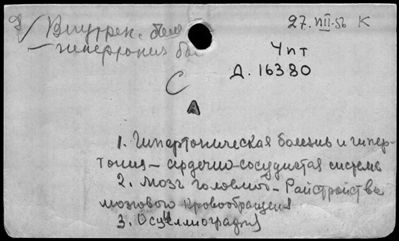 Внутрен. бол
27.VIII.56 К
— гипертония бол
Чпт
Д. 16380
С
А
1. Гипертоническая болезнь и гипер-
тония — сердечно-сосудистая система
2. Мозг головной — Расстройства
мозгового кровообращения
3. Осциллография